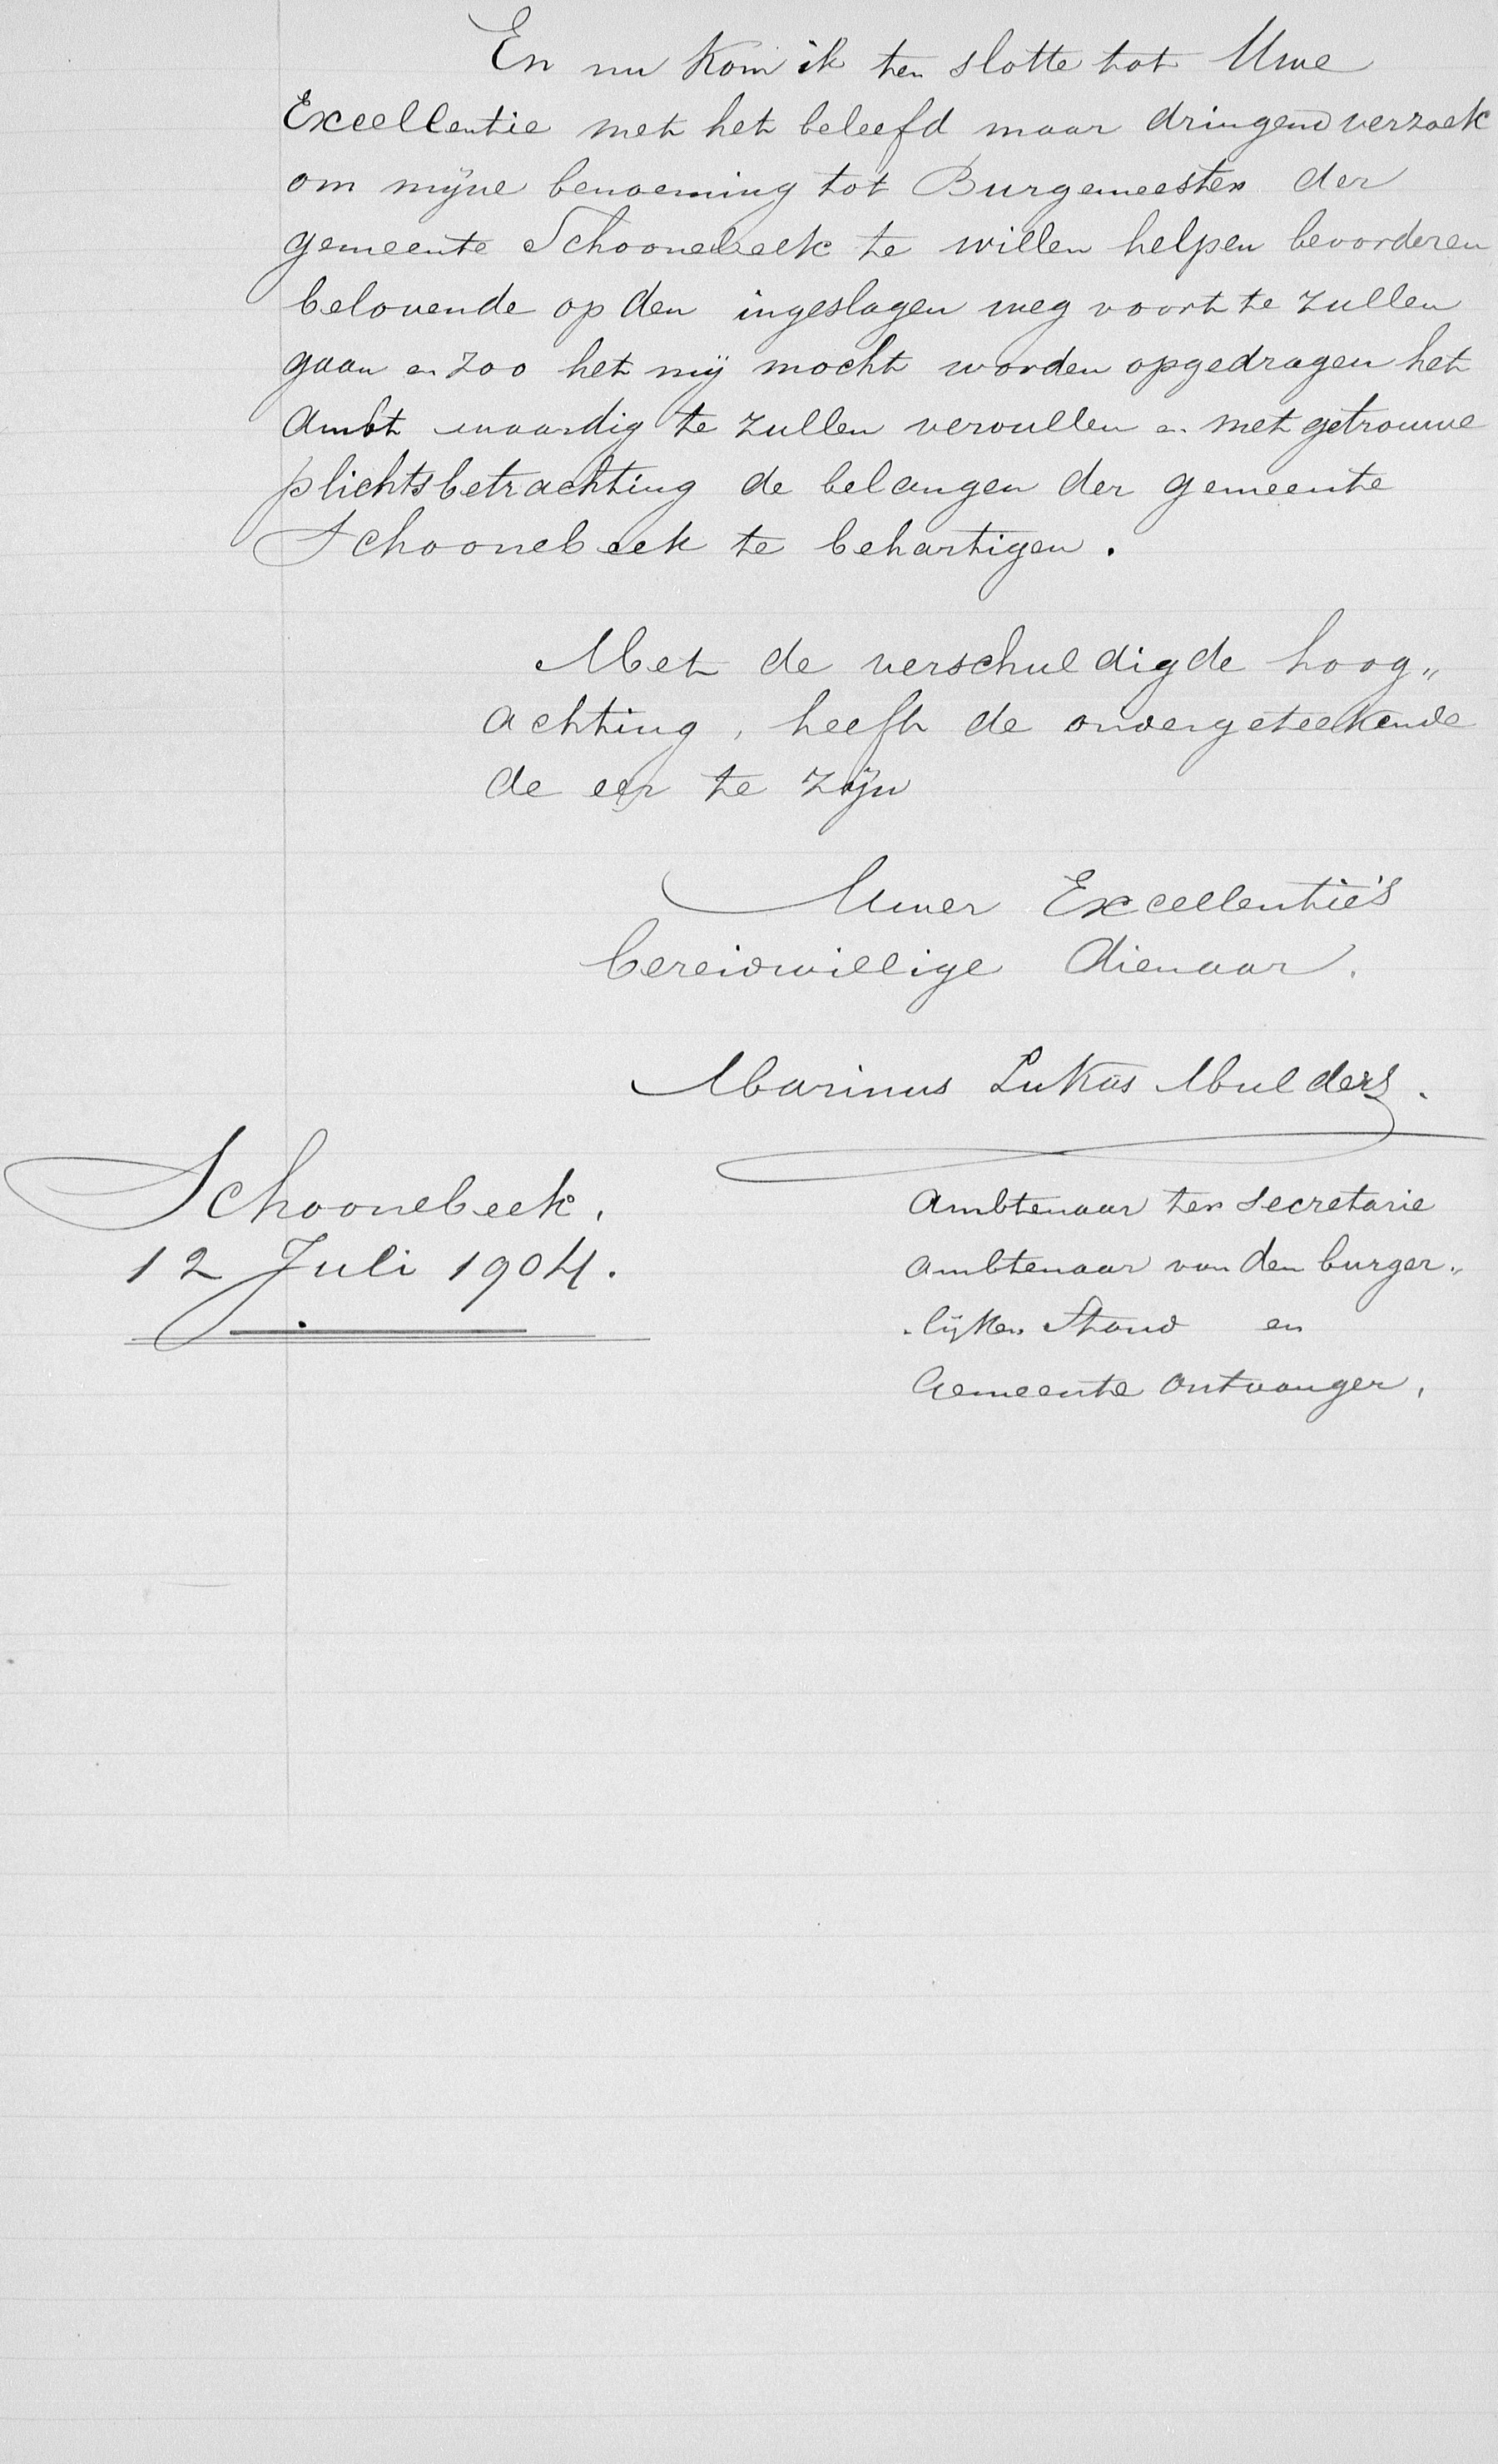 En nu kom ik ten slotte tot Uwe
Excellentie met het beleefd maar dringend verzoek
om mijne benoeming tot Burgemeester der
gemeente Schoonebeek te willen helpen bevorderen
belovende op den ingeslagen weg voort te zullen
gaan en zoo het mij mocht worden opgedragen het
Ambt waardig te zullen vervullen en met getrouwe
plichtsbetrachting de belangen der gemeente
Schoonebeek te behartigen.
Met de verschuldigde hoog„
achting, heeft de ondergeteekende
de eer te zijn
Uwer Excellentie's
bereidwillige Dienaar.
Marinus Lukas Mulders.
Schoonebeek,
12 Juli 1904.
Ambtenaar ter secretarie
Ambtenaar van den burger„
„lijken Stand en
Gemeente Ontvanger.